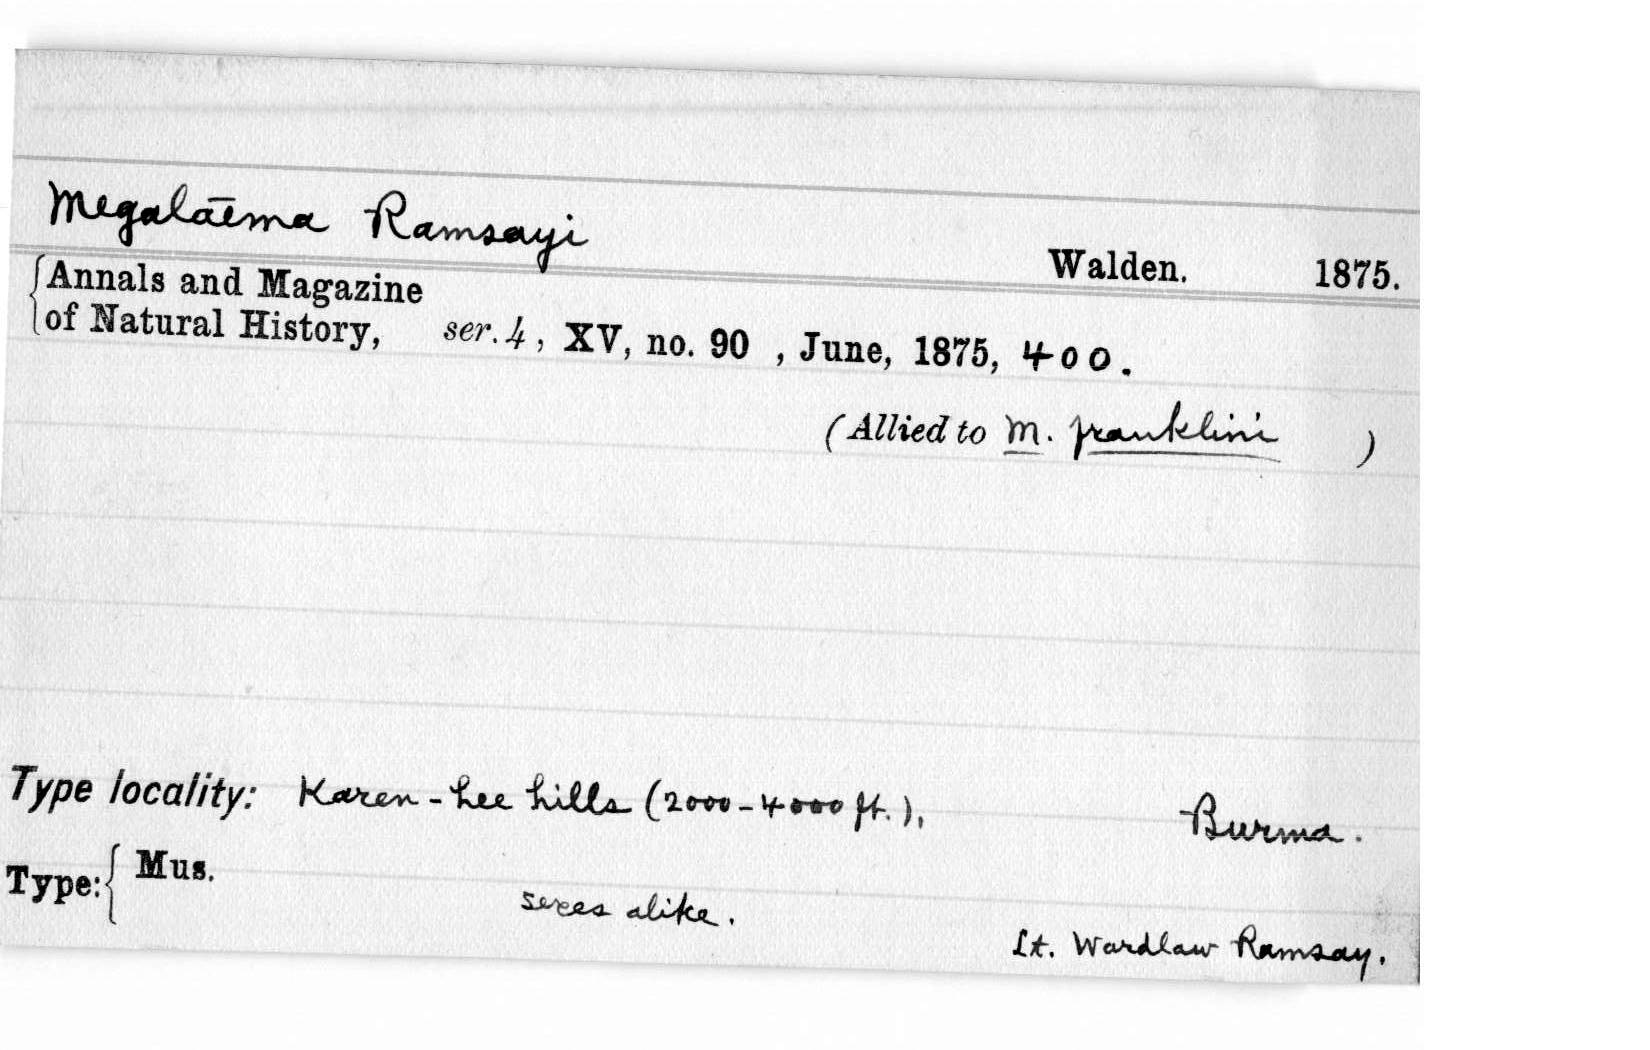 Megalaēma Ramsayi
Walden. 1875.
{Annals and Magazine
of Natural History, ser. 4, XV, no. 90 , June, 1875, 400.
(Allied to M. franklini )
Type locality: Karen-hee hills (2000-4000 ft.), Burma.
Type:{ Mus.
sexes alike.
Lt. Wardlaw Ramsay.